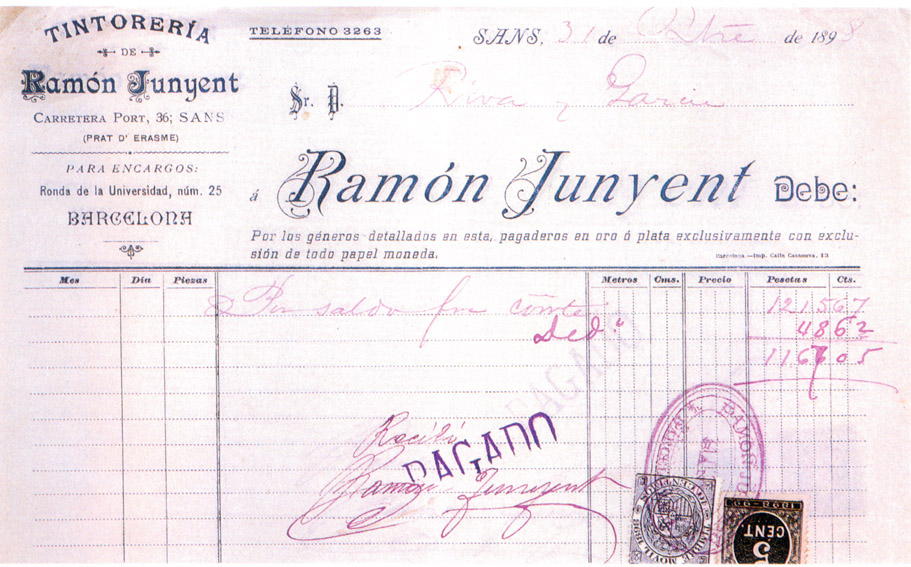 TINTORERÍA
DE
Ramón Junyent
CARRETERA PORT, 36; SANS
(PRAT D' ERASME)
PARA ENCARGOS:
Ronda de la Universidad, núm. 25
BARCELONA
TELÉFONO 3263
SANS, 31 de Octbre de 1898
Sr. D. Riva y Garcia
á Ramón Junyent Debe:
Por los géneros detallados en esta, pagaderos en oro ó plata exclusivamente con exclu-
sión de todo papel moneda.
Barcelona.—Imp. Calle Casanova, 13
Mes Día Piezas Metros Cms. Precio Pesetas Cts.
Por saldo fra 1215 67
Ded.º 48 62
1167 05
Recibí
PAGADO
Ramón Junyent
PAGADO
RAMON
5
CENT